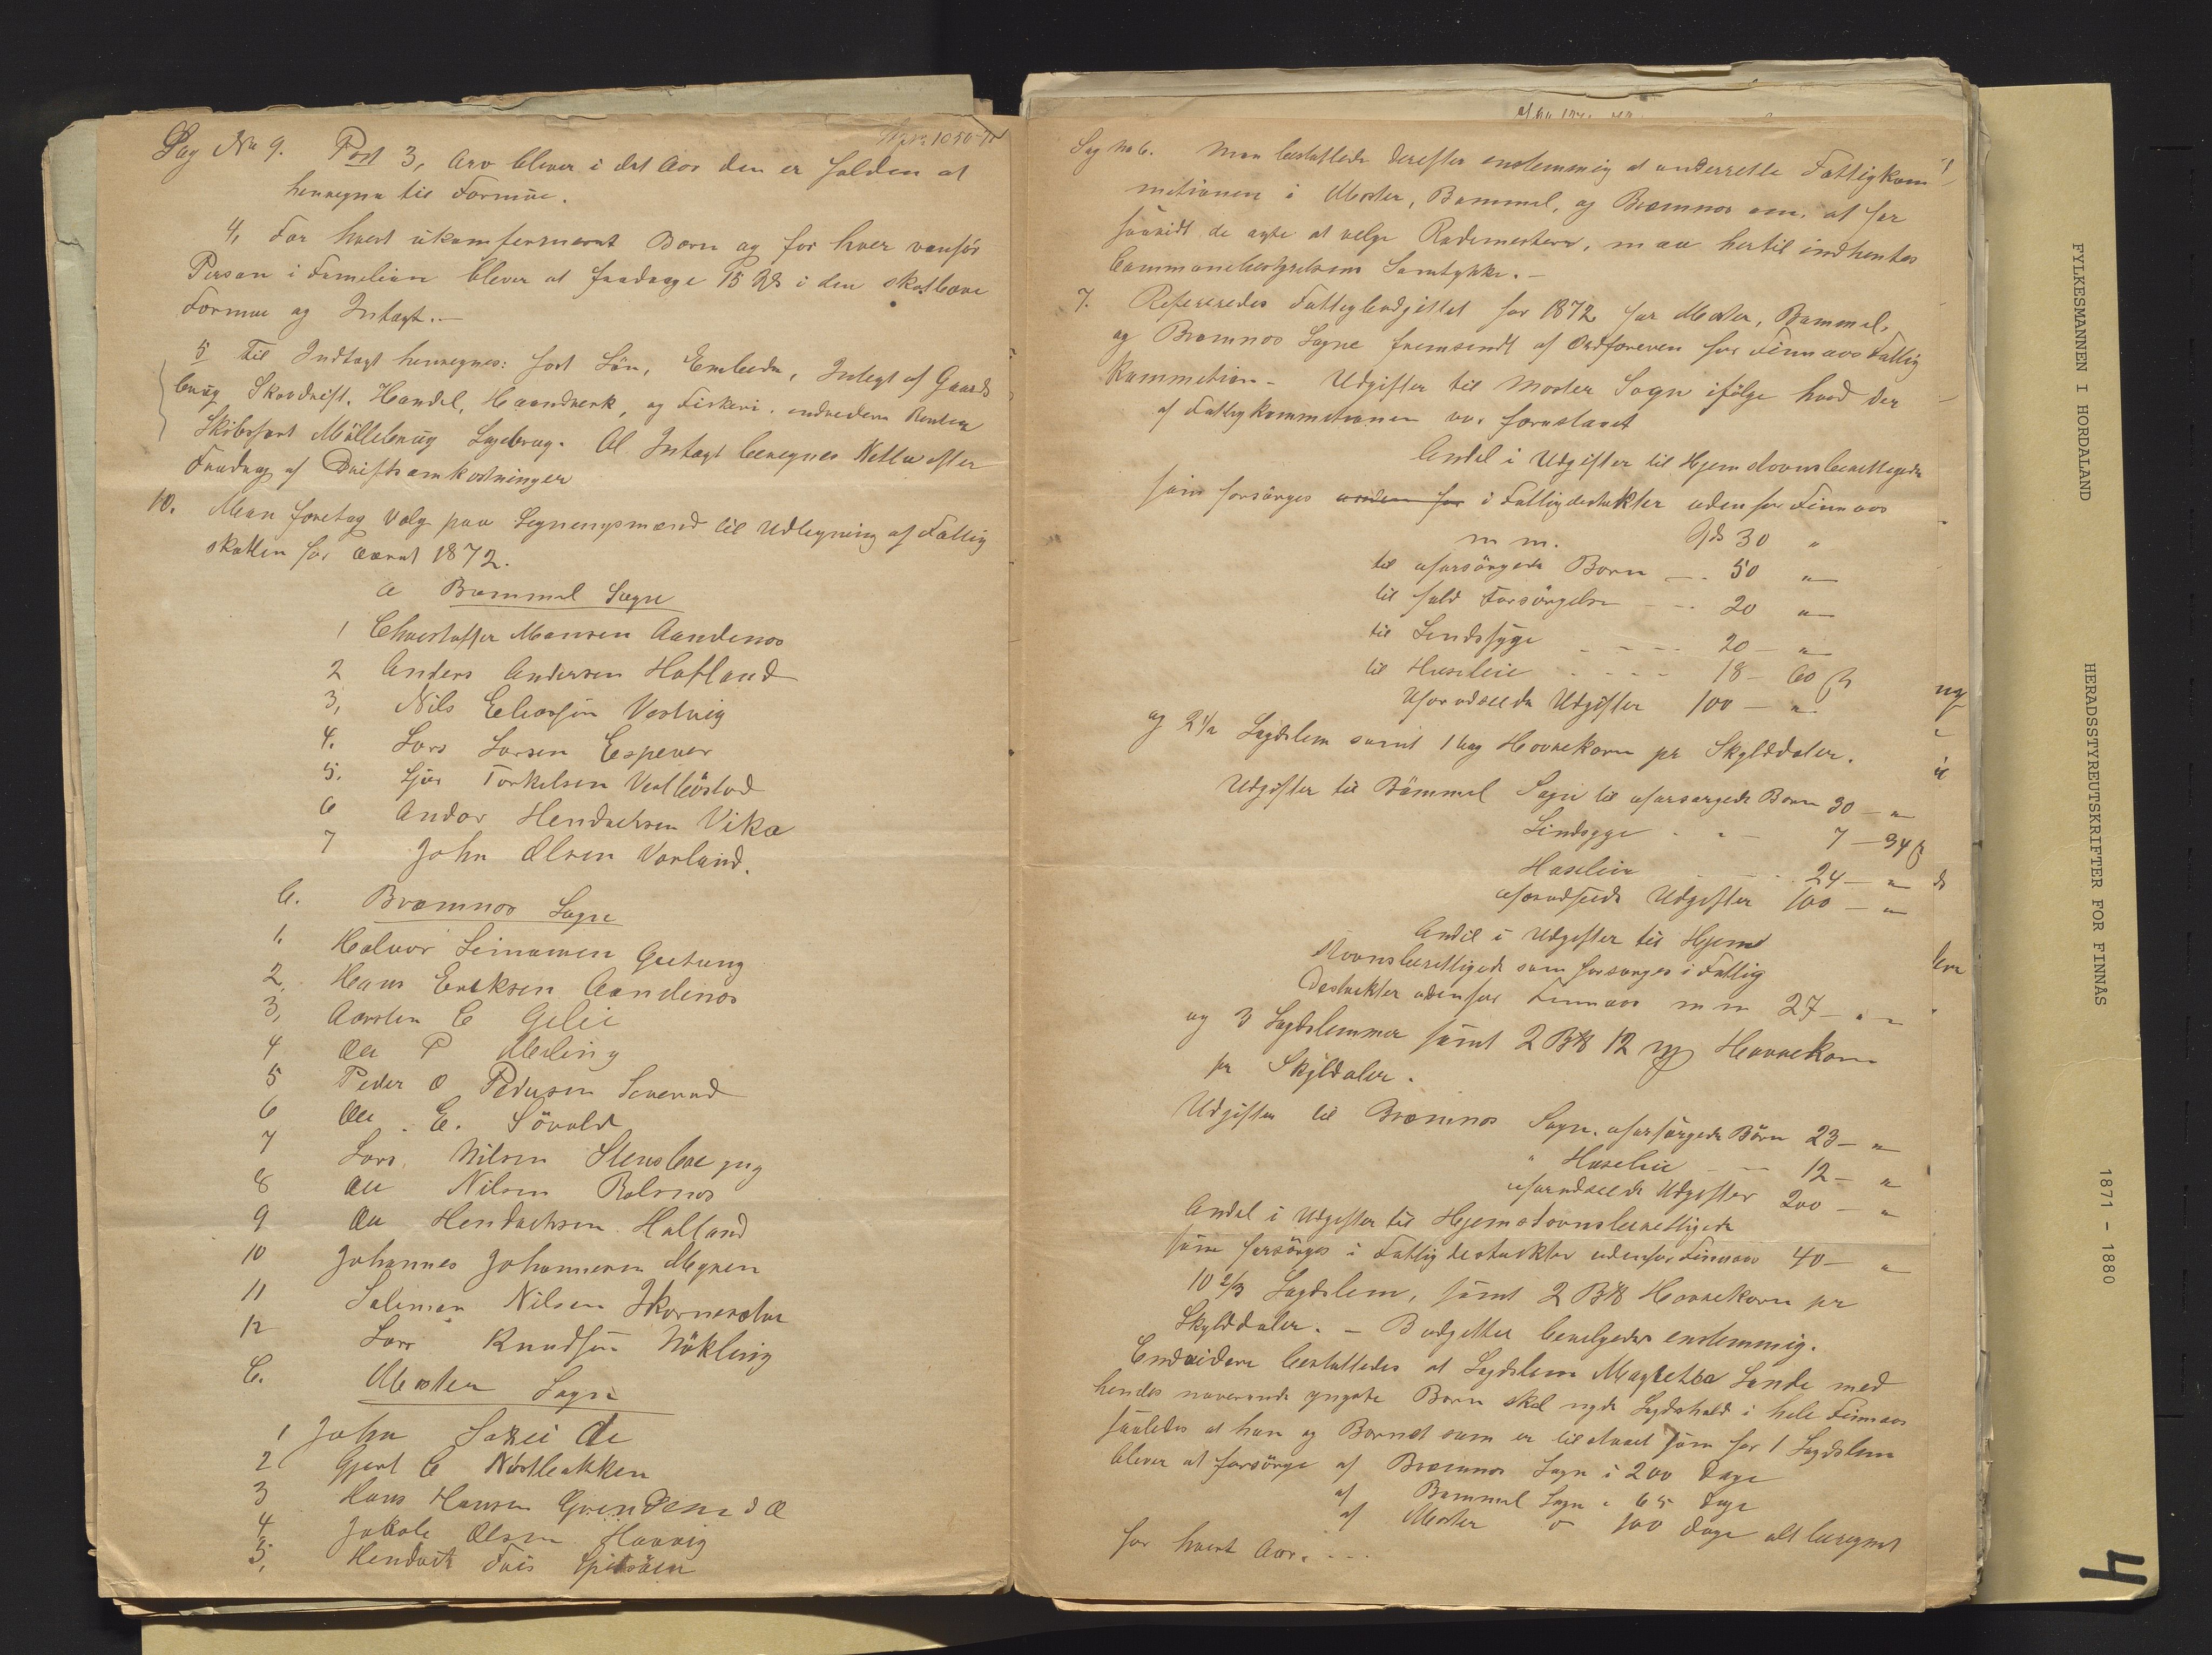 Sag No 9. Post 3, Arv bliver i det Aar den er falden at
henregne til Formue.
4, For hvert ukomfermeret Barn og for hver vanför
Person i Familien bliver at fradrage 15 Spd i den skatbare
Formue og Intægt.—
5 Til Indtægt henregnes: fast Lön, Embede, Integt af Gaards
brug Skovdrift, Handel, Haandverk, og Fiskeri. endvedere Renter
Skibsfart Möllebrug Sagbrug. Al Intægt beregnes Netto efter
Fradrag af Driftsomkostninger
10. Man foretog Valg paa Legningsmænd til Udlegning af Fattig
skatten for Aaret 1872.
a Bremmel Sogn
1 Chrestoffer Monsen Aandenos
2 Anders Andersen Hofland
3, Nils Eliasson Vestvig
4. Lars Larsen Espever
5. Sjur Torkelsen Vestböstad
6 Andor Hendrechsen Vika
7 John Olsen Vorland.
b. Bremnos Sogn
1. Halvor Seimonsen
2, Hans Ereksen Aandenos
3, Aarsten C Gilie
4 Ole P Meling
5 Peder O Pedersen
6 Ole E. Sövold
7 Lars Nilsen
8 Ole Nilsen Rolsnos
9 Ole Hendrechsen Halland
10 Johannes Johannesen Myren
11 Salimon Nilsen
12 Lars Knudsön Nökling
C. Moster Sogn
1 John
2 Gjert C Nöstbakken
3 Hans Hansen
4, Jakob Olsen Haavig
5, Hendrik Spidsöen
Sag No 6. Man besluttede derefter enstemmig at underrette Fattigkom
metionen i Moster, Bømmel, og Bremnos om, at for
saavidt de agte at velge Rodemestere, maa hertil indhentes
Communebestyrelsens Samtykke.—
7. Refereredes Fattigbudgettet for 1872 for Moster, Bømmel,
og Bremnos Sogne fremsendt af Ordføreren for Finnaas Fattig
Kommetion— Udgifter til Moster Sogn ifölge hvad der
af Fattigkommetionen var foreslaaet
Andel i Udgifter til Hjemstavnsberettigede
som forsörges i Fattigdestrekter udenfor Finnaas
m m. Spd 30 "
til uforsörgede Børn — . 50 "
til fuld Forsörgelse — . 20 "
til Sindssyge — 20 — "
til Husleie 18 — 60 ß
Uforudseede Udgifter 100 — "
og 2 1/2 Lægdslem samt 1 Havrekorn pr Skylddaler.
Udgifter til Bömmel Sogn til uforsorgede Børn 30 — "
Sindsyge 7 — 34 ß
Husleie 24 — "
uforudseede Udgifter 100 — "
Andel i Udgifter til Hjem
stavnsberettigede som forsørges i Fattig
Destrekter udenfor Finnaas m m 27 — "
og 3 Lægdslemmer samt 2 12 Havrekorn
pr Skylddaler.
Udgifter til Bremnos Sogn. uforsörgede Börn 23 — "
" Husleie 12 — "
uforudseede Udgifter 200 — "
Andel i Udgifter til Hjemstavnsberettigede
som forsörges i Fattigdestrekter udenfor Finnaas 40 — "
10 2/3 Lægdslem, samt 2 Havrekorn pr
Skylddaler. — Budgettet bevelgedes enstemmig.
Endvidere besluttedes at Lægdslem Magrethe Lande med
hendes naverende yngste Barn skal nyde Lægdshold i hele Finnaas
saaledes at hun og Barnet som er tilstaaet som for 1 Lægdslem
bliver at forsörge af Bremnos Sogn i 200 Dage
af Bømmel Sogn i 65 Dage
af Moster 100 Dage alt beregnet
for hvert Aar. . . .
FYLKESMANNEN I HORDALAND
HERADSSTYREUTSKRIFTER FOR FINNÅS
1871 - 1880
4